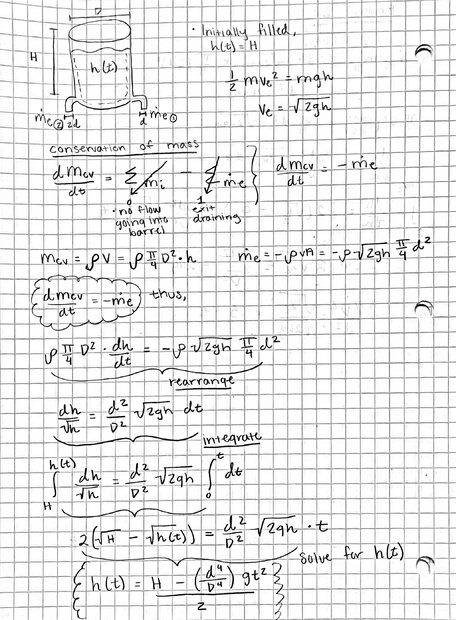 D
• Initially filled,
h(t) = H
H
h(t)
½ mvₑ² = mgh
vₑ = √2gh
ṁe② 2d
d ṁe①
conservation of mass
dmcv/dt = Σṁi - Σṁe } dmcv/dt = -ṁe
0 1
• no flow going into barrel
exit draining
mcv = ρV = ρ π/4 D²·h ṁe = -ρvA = -ρ√2gh π/4 d²
dmcv/dt = -ṁe thus,
ρ π/4 D² · dh/dt = -ρ √2gh π/4 d²
rearrange
dh/√h = d²/D² √2gh dt
integrate
∫ₕ^h(t) dh/√h = d²/D² √2gh ∫₀^t dt
2(√H - √h(t)) = d²/D² √2gh · t
solve for h(t)
h(t) = H - (d⁴/D⁴) gt²
2